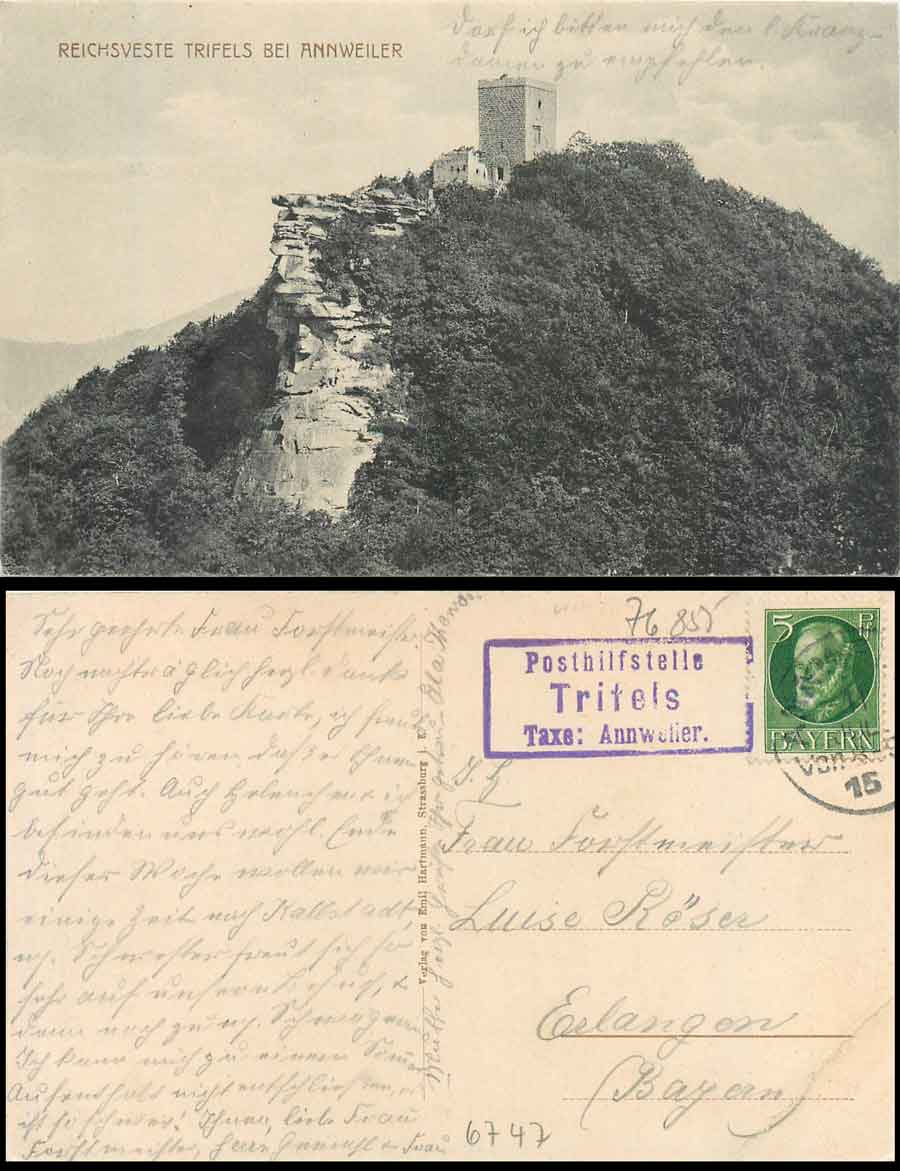 REICHSVESTE TRIFELS BEI ANNWEILER
Darf ich bitten mich den l. Kranz-
damen zu empfehlen.
Sehr geehrte Frau Forstmeister
Noch nachträglich herzl. Dank
für Ihre liebe Karte, ich freue
mich zu hören daß es Ihnen
gut geht. Auch Helenchen u. ich
befinden uns wohl. Ende
dieser Woche wollen wir
einige Zeit nach Kallstadt,
m. Schwester freut sich so
sehr auf unsern Besuch, &
dann noch zu m. Schwager
Ich kann mich zu einem
Aufenthalt nicht entschließen, es
ist so schwer. Ihnen, liebe Frau
Forstmeister, Herr Gemahl & Frau
Verlag von Emil Hartmann, Strassburg i. E.
76 855
Posthilfstelle
Trifels
Taxe: Annweiler.
5 Pf
BAYERN
15
Frau Forstmeister
Luise Röser
Erlangen
(Bayern)
6747